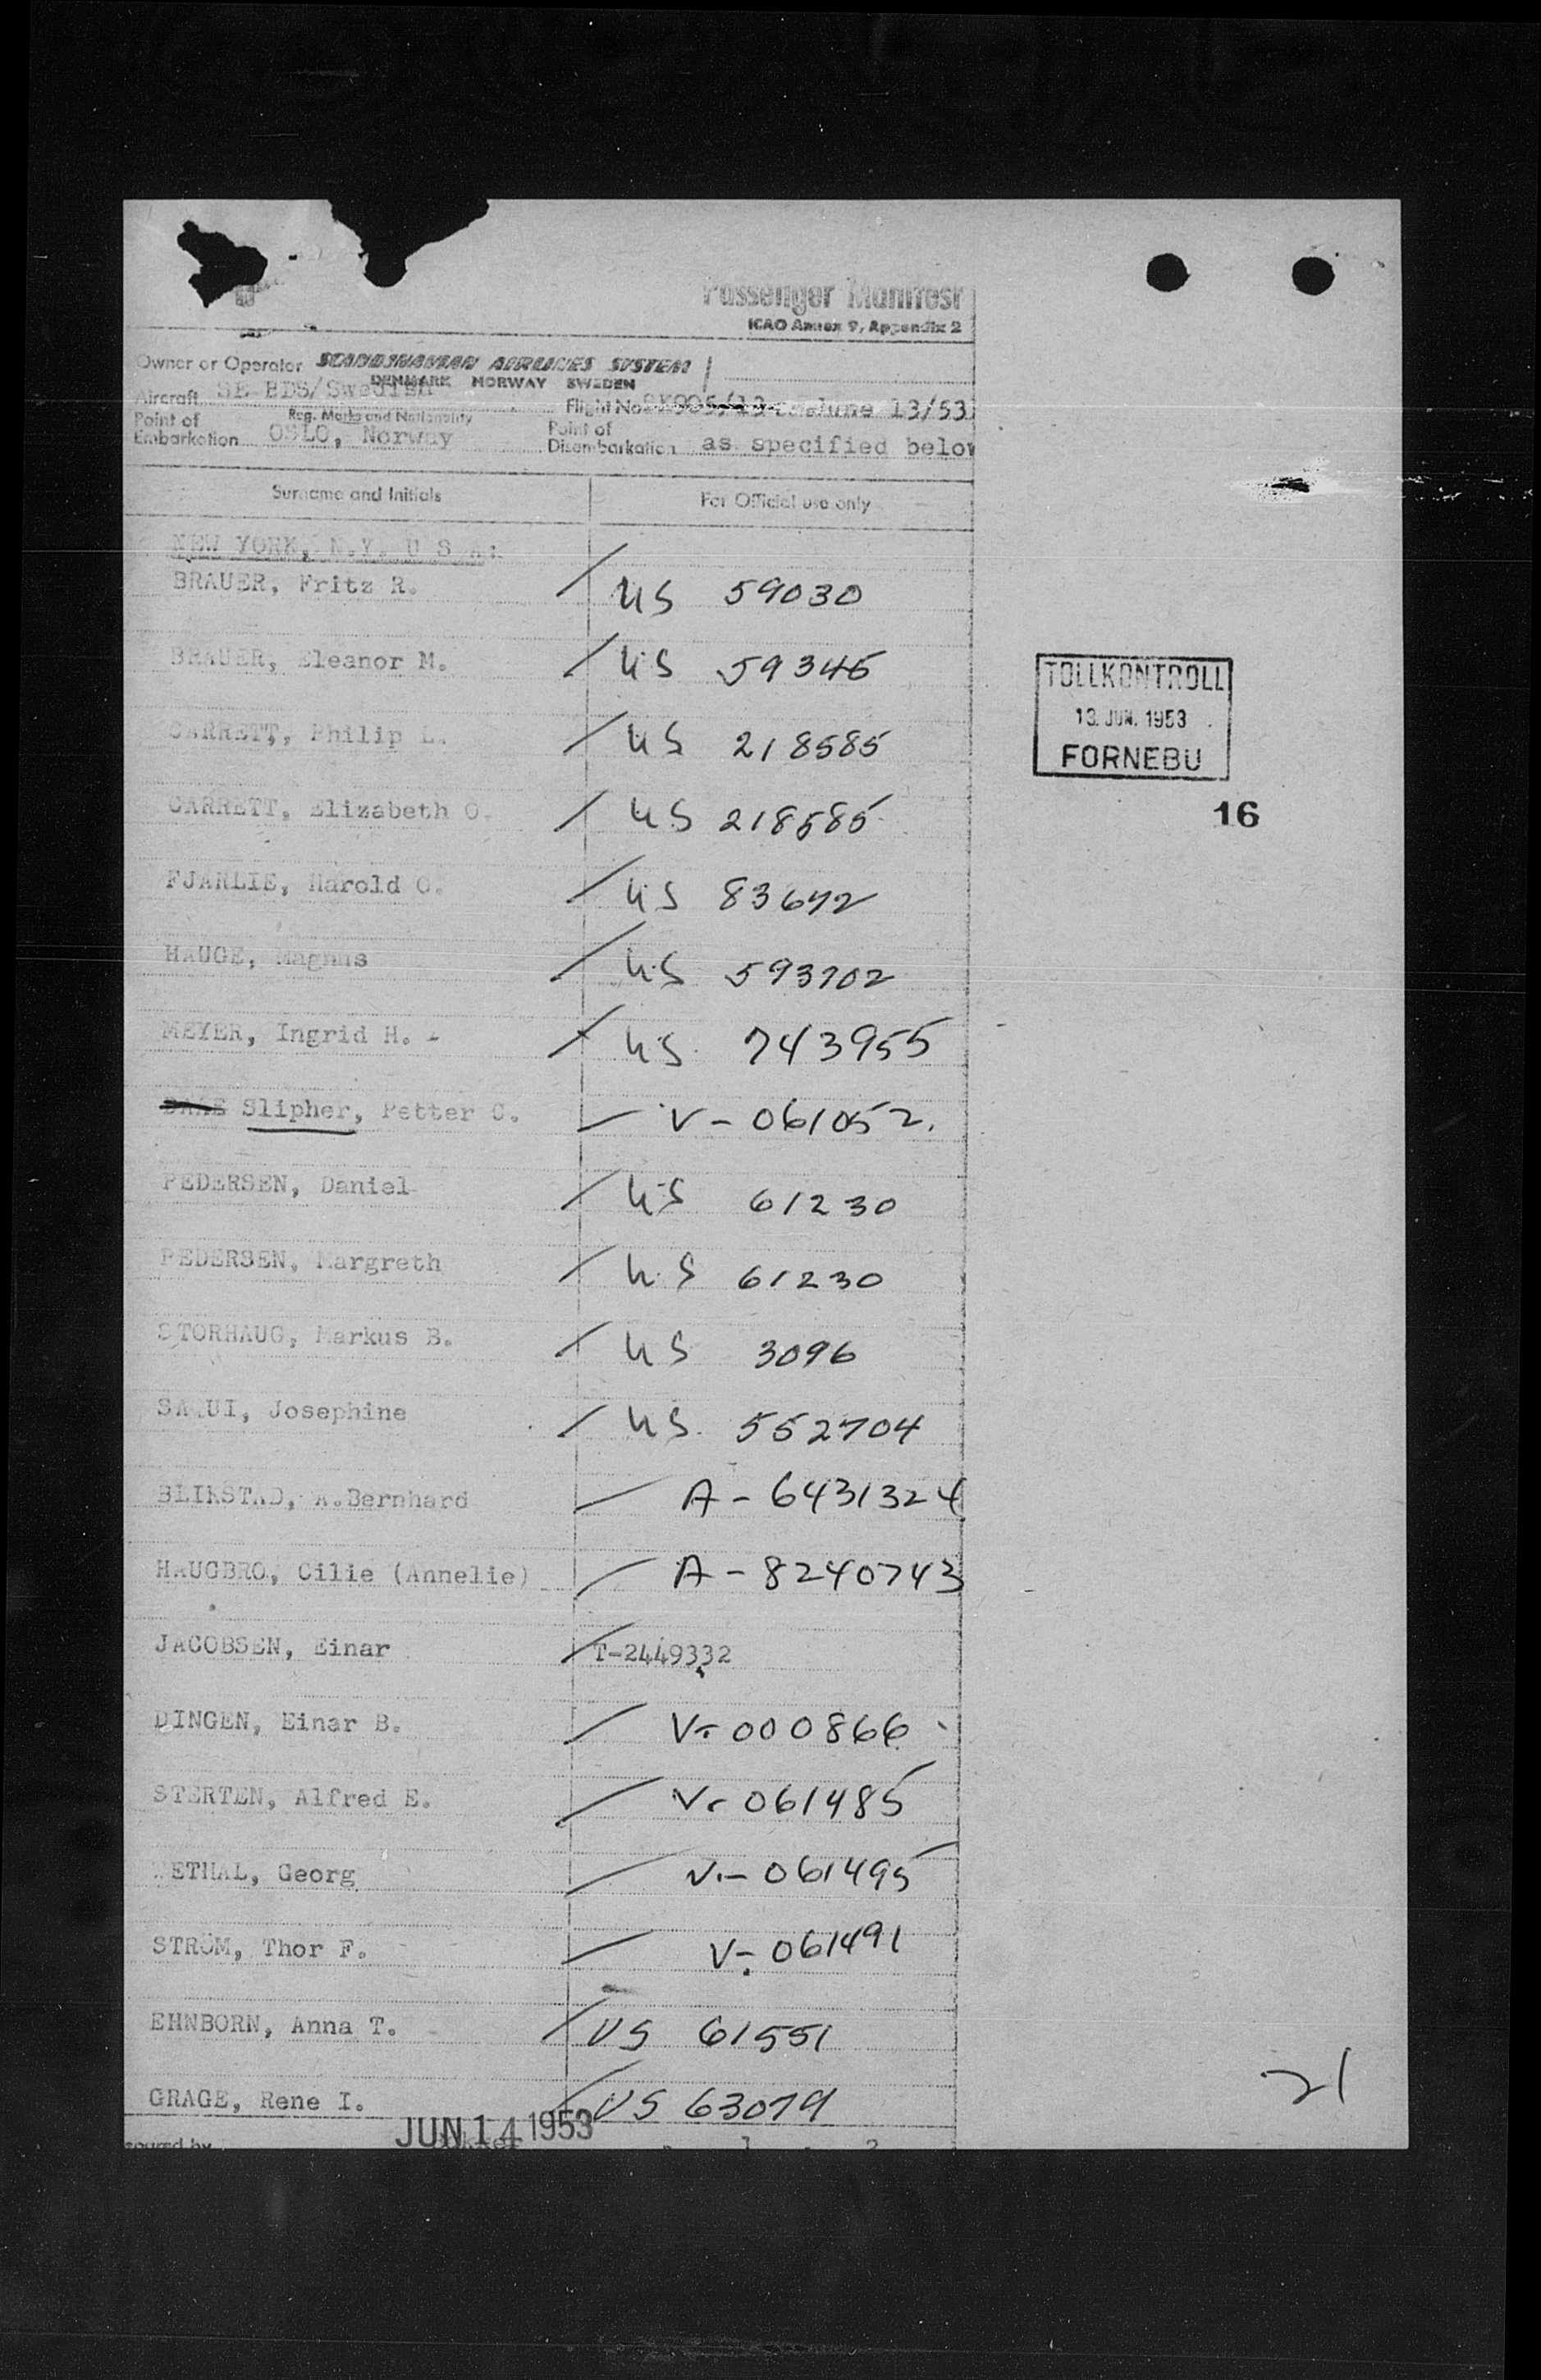 Passenger Manifest
ICAO Annex 9, Appendix 2
Owner or Operator SCANDINAVIAN AIRLINES SYSTEM
DENMARK NORWAY SWEDEN
Aircraft SE-BDS/Swedish Flight No. SK905/13 June 13/53
Reg. Marks and Nationality
Point of Embarkation OSLO, Norway Point of Disembarkation as specified below
Surname and Initials For Official use only
NEW YORK, N.Y. U S A:
BRAUER, Fritz R. US 59030
BRAUER, Eleanor M. US 59345
GARRETT, Philip L. US 218585
GARRETT, Elizabeth O. US 218585
FJARLIE, Harold O. US 83672
HAUGE, Magnus US 593702
MEYER, Ingrid H. US 743955
Slipher, Petter C. V-061052.
PEDERSEN, Daniel US 61230
PEDERSEN, Margreth US 61230
STORHAUG, Markus B. US 3096
Josephine US 552704
BLIKSTAD, A.Bernhard A-6431324
HAUGBRO, Cilie (Annelie) A-8240743
JACOBSEN, Einar T-2449332
DINGEN, Einar B. V-000866
STERTEN, Alfred E. V-061485
Georg V-061495
STRÖM, Thor F. V-061491
EHNBORN, Anna T. US 61551
GRAGE, Rene I. US 63079
JUN 14 1953
TOLLKONTROLL
13. JUN. 1953
FORNEBU
16
21